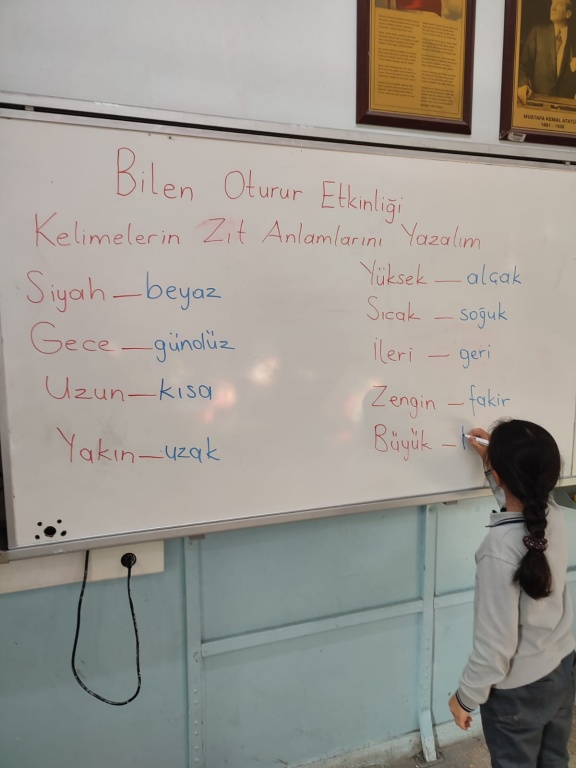 MUSTAFA KEMAL ATATÜRK
1881 - 1938
Bilen Oturur Etkinliği
Kelimelerin Zıt Anlamlarını Yazalım
Siyah — beyaz
Gece — gündüz
Uzun — kısa
Yakın — uzak
Yüksek — alçak
Sıcak — soğuk
İleri — geri
Zengin — fakir
Büyük —